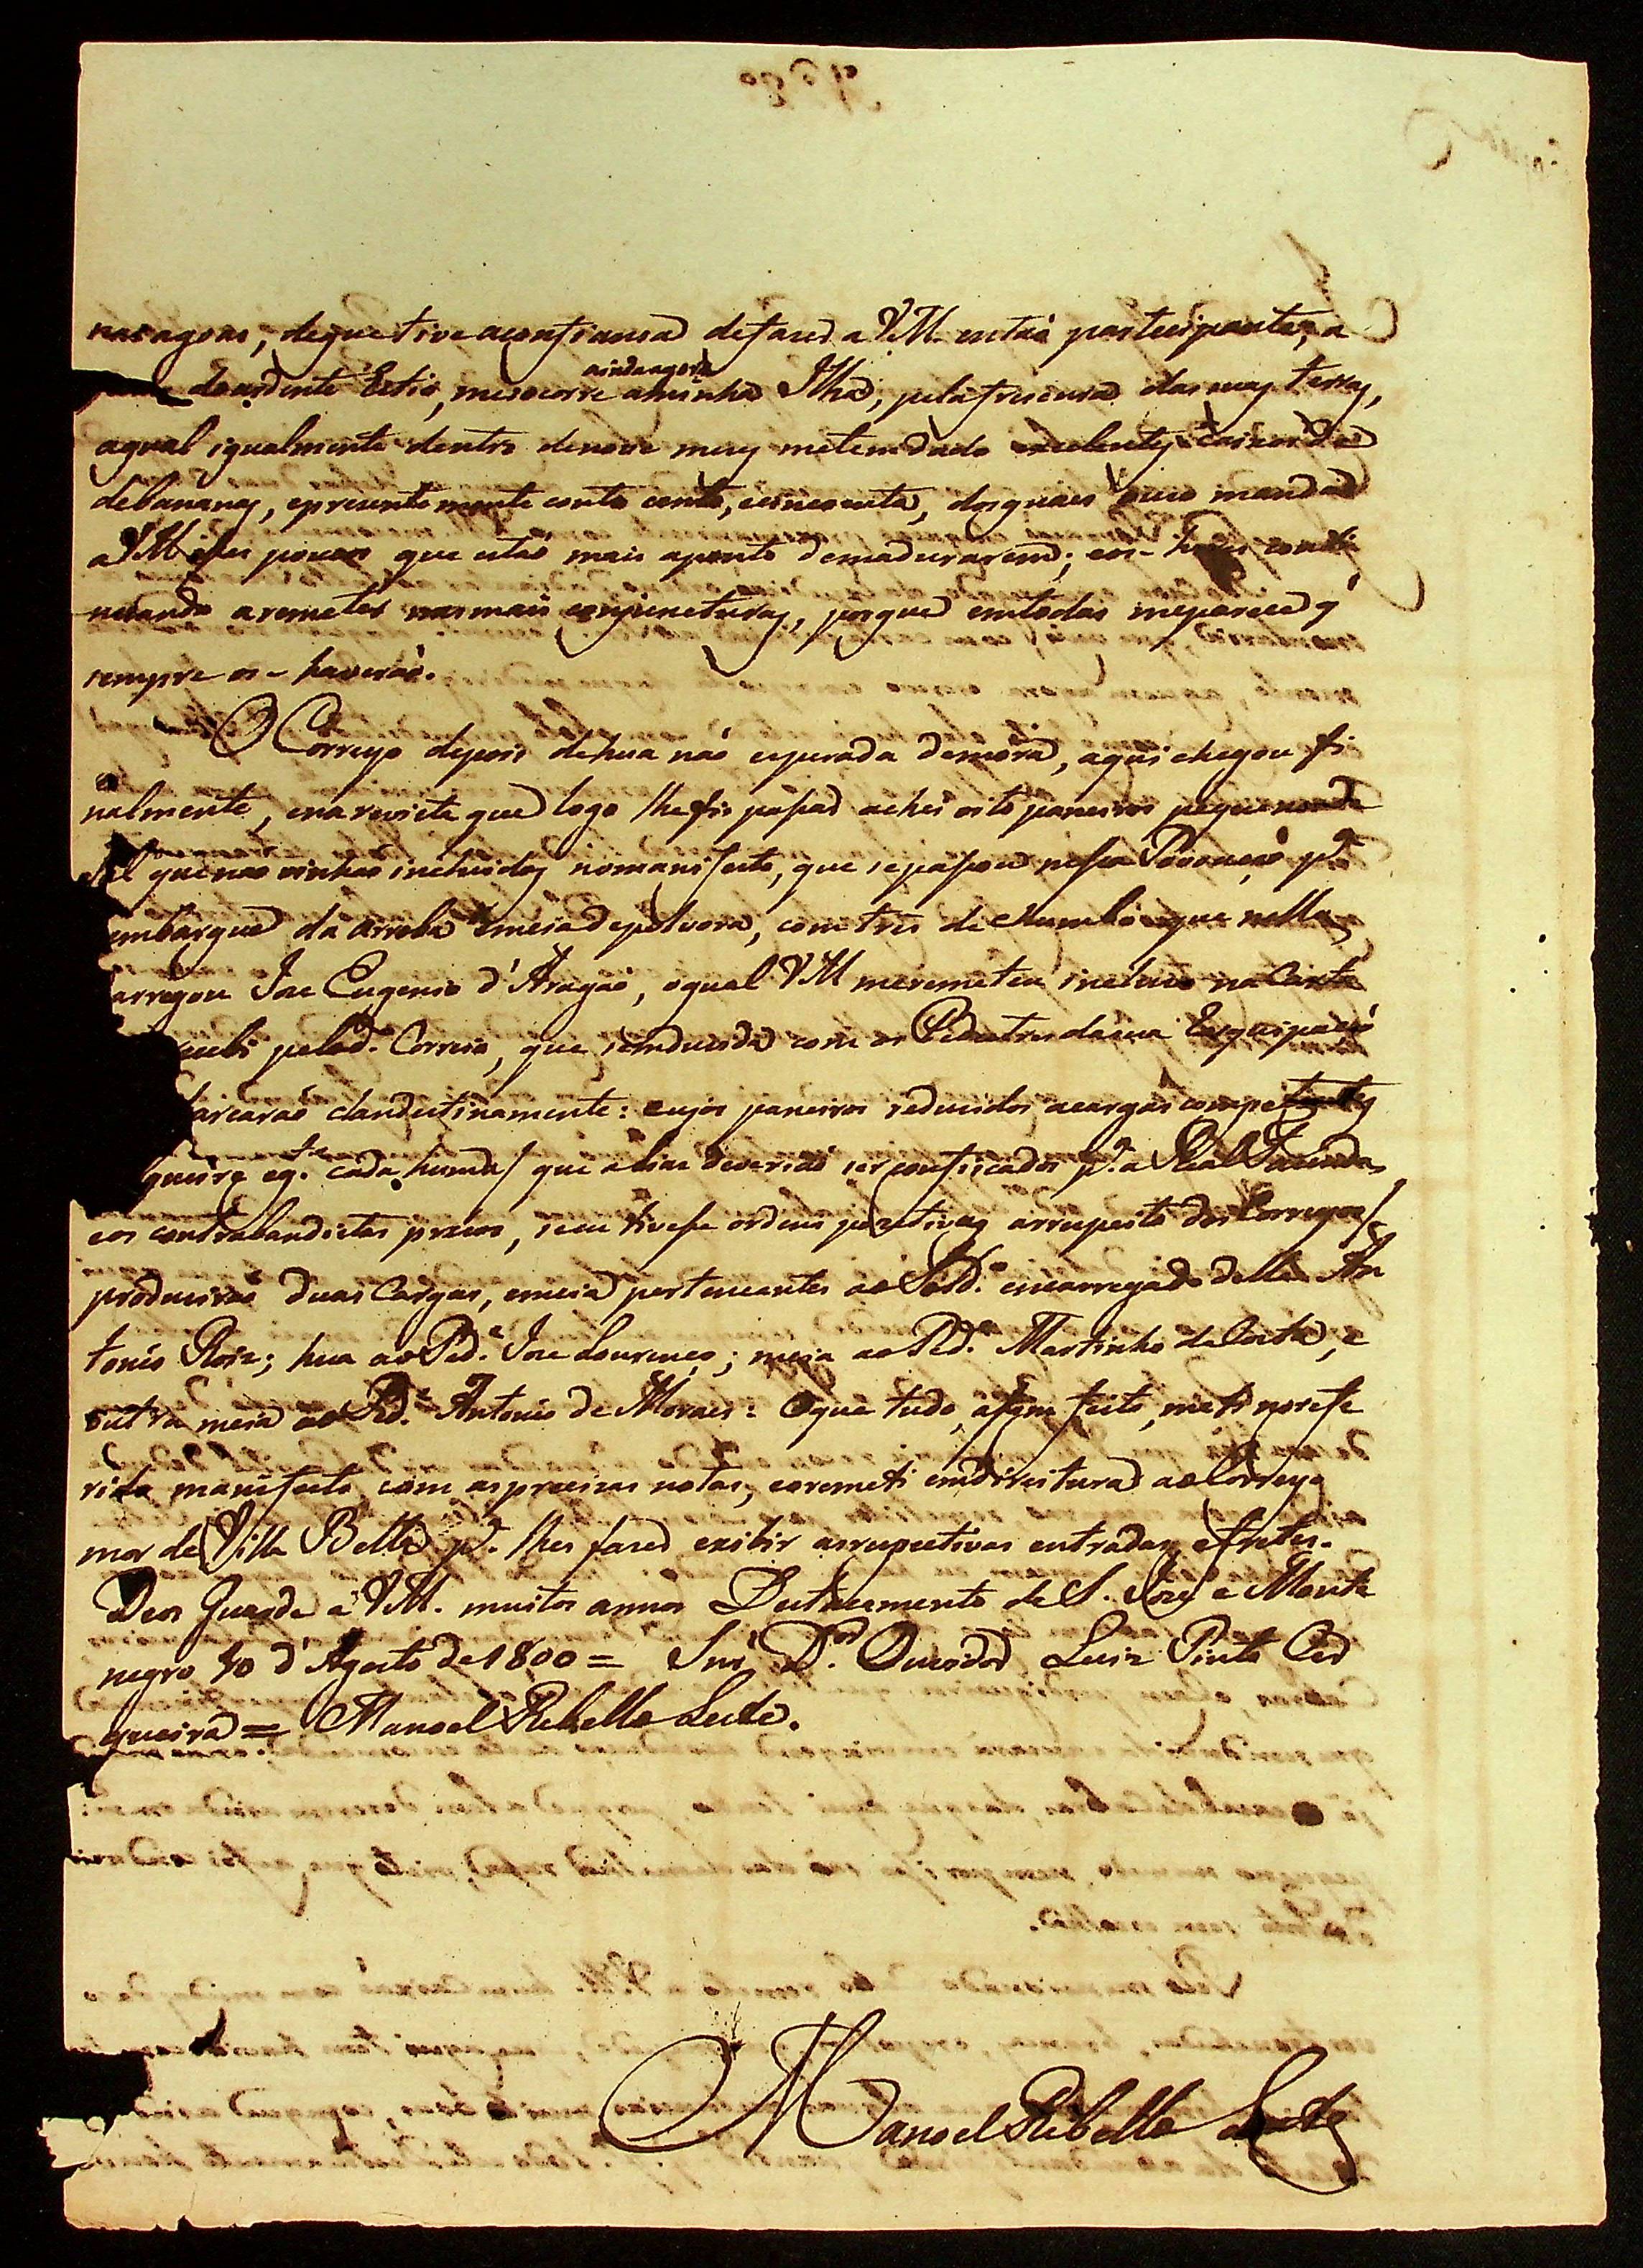 nas agoas, de que tive a confiansa de fazer a VM. entaõ participante, a
do ardente Estio, me socorre ainda agora a minha Ilha, pela frescura das suas terras,
a qual igualmente dentro de nove mezes me tem dado excelentes caixos
de bananas, e prezentemente conto cento, e sincoenta, dos quaes
a VM esses poucos que estaõ mais a ponto de madurarem; e os-hirei conti
nuando a remeter nas mais conjuncturas, porque em todas me parece q'
sempre os-haveraõ.
O Correyo depois de hua naõ esperada demora, aqui chegou fi
nalmente, e na revista que logo lhe fis passar achei oito paneiros pequenos de
sal que naõ vinhaõ incluidos no manifesto, que se passou nessa Povoaçaõ pª o
embarque da arroba e meia de polvora, com tres de chumbo que nella
arregou Joze Eugenio d'Aragaõ, o qual VM me remeteu incluzo na Carta
cebi pelo d.º Correio, que conduzida com os Pedestres da sua Esquipaçaõ
barcaraõ clandestinamente: cujos paneiros reduzidos a cargas competentes
queire eq.te cada huma/ que alias deveriaõ ser confiscados p.ª a Real Fazenda,
e os contrabandistas prezos, se eu tivese ordens pozitivas a respeito dos Correyos/
produziraõ duas Cargas, e meia pertencentes ao Sold.º encarregado delle An
tonio Roiz; hua ao Ped.e Joze Lourenço; meia ao Ped.e Martinho da Costa, e
outra meia ao Ped.e Antonio de Moraes: O que tudo, assim feito, meti no refe
rido manifesto com as precizas notas, e o remeti em direitura ao Correyo
mor de Villa Bella p.ª lhes fazer exibir as respectivas entradas, e fretes.
Deos Guarde a VM. muitos annos Destacamento de S. Jozé e Monte
negro 30 d'Agosto de 1800 = Snr' D.or Ouvidor Luiz Pinto Cer
queira = Manoel Rebello Leite.
Manoel Rebello Leite